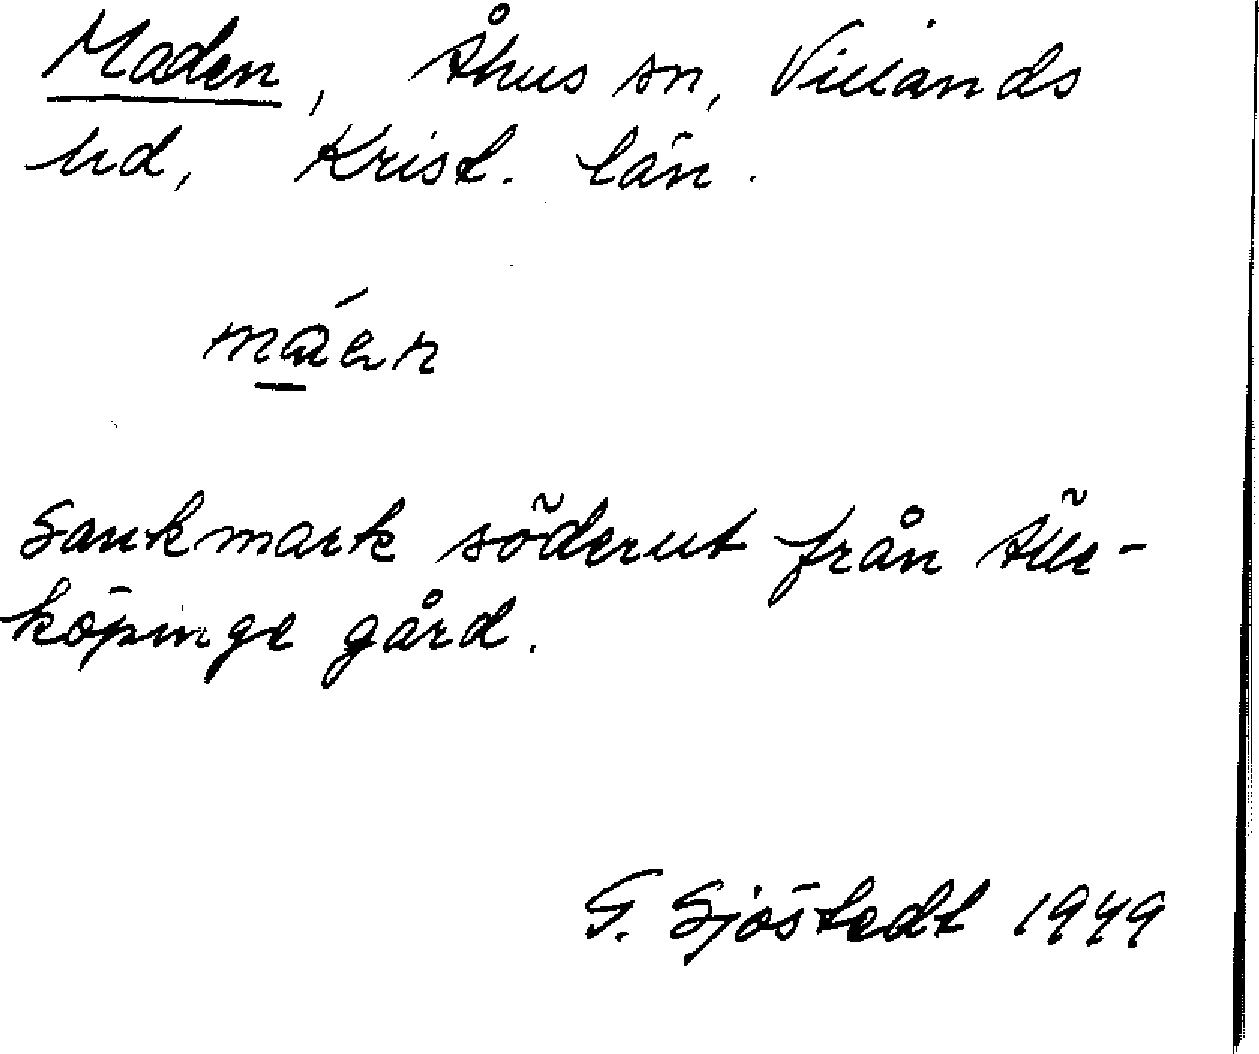 Maden, Åhus sn, Villands
hd, Krist. län.
máen
Sankmark söderut från Älle-
köpinge gård.
G. Sjöstedt 1949